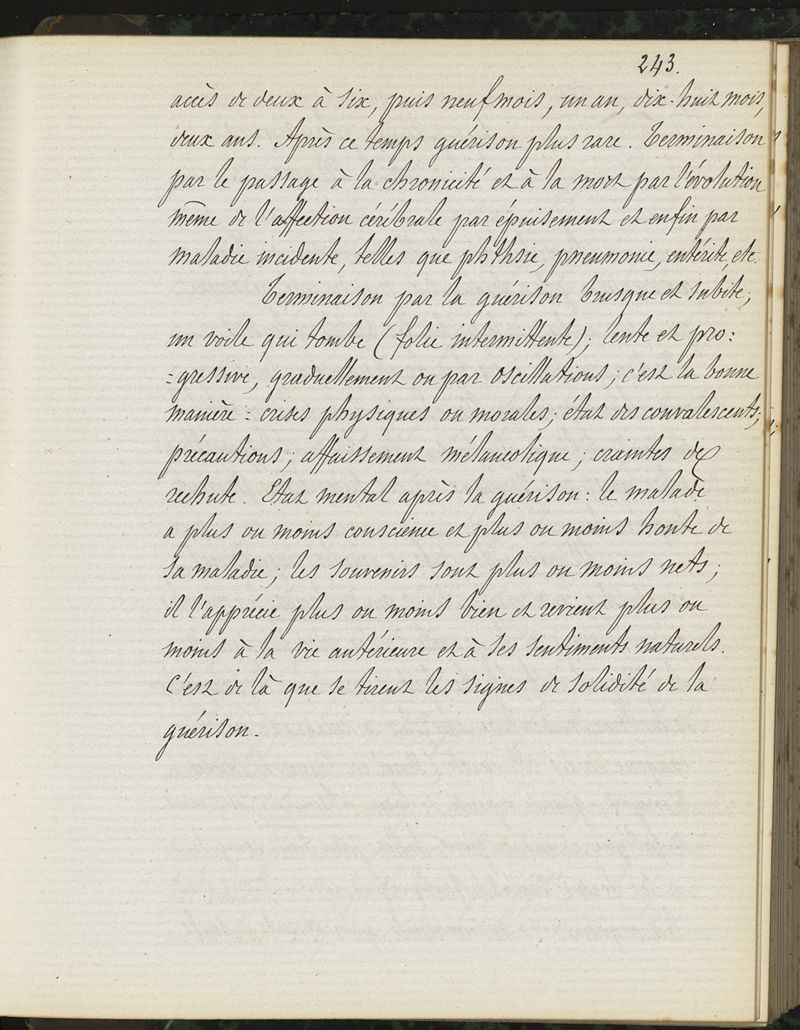 243.
accès de deux à six, puis neuf mois, un an, dix-huit mois,
deux ans. Après ce temps guérison plus rare. Terminaison
par le passage à la chronicité et à la mort par l'évolution
même de l'affection cérébrale par épuisement et enfin par
maladie incidente, telles que phthsie, pneumonie, entérite, etc.
Terminaison par la guérison brusque et subite;
un voile qui tombe (folie intermittente); lente et pro:
:gressive, graduellement ou par oscillations; c'est la bonne
manière: crises physiques ou morales; état des convalescents;
précautions; affaissement mélancolique; craintes de
rechute. Etat mental après la guérison: le malade
a plus ou moins conscience et plus ou moins honte de
sa maladie; les souvenirs sont plus ou moins nets;
il l'apprécie plus ou moins bien et revient plus ou
moins à la vie antérieure et à ses sentiments naturels.
C'est de là que se tirent les signes de solidité de la
guérison.